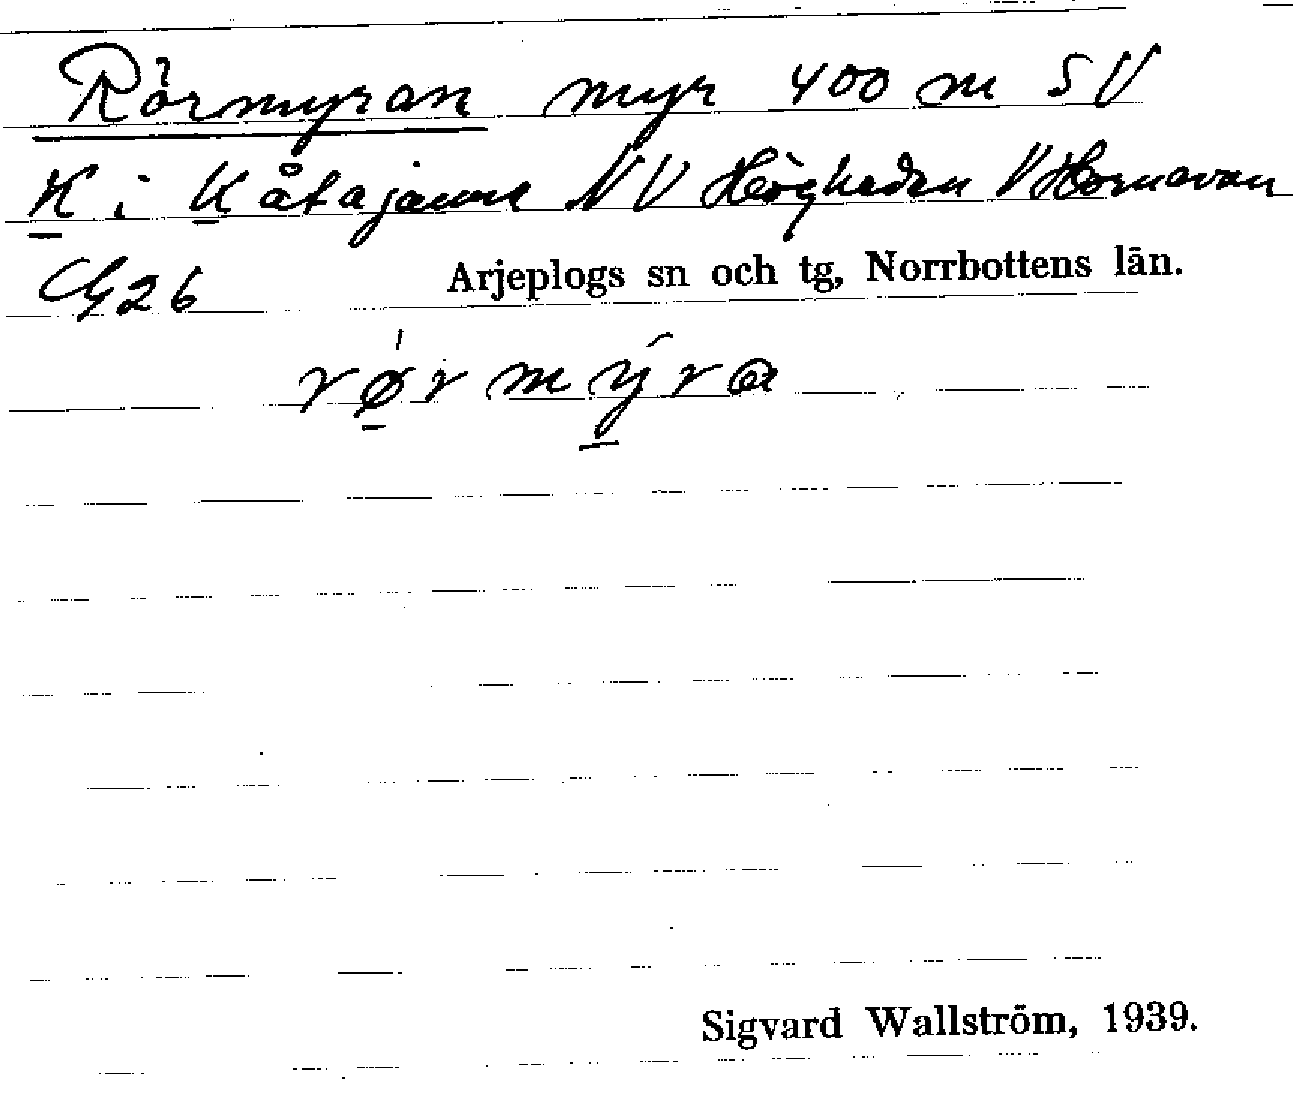 Rörmyran myr 400 m SV
K i Kåtajaure NV Högheden V Hornavan
G26 Arjeplogs sn och tg, Norrbottens län.
rǿ̱r my̱̆ra
Sigvard Wallström, 1939.